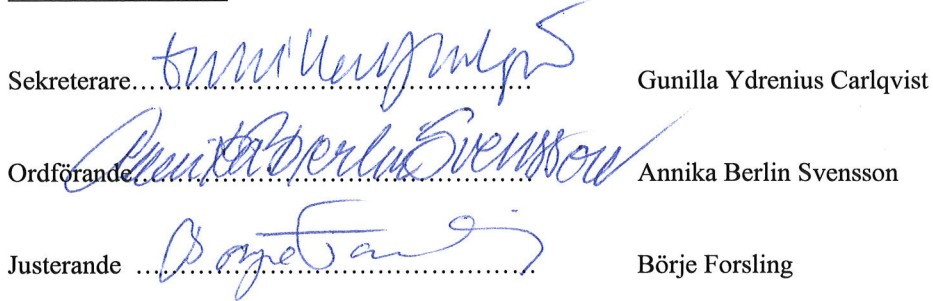 Sekreterare.................................................. Gunilla Ydrenius Carlqvist
Ordförande Annika Berlin Svensson.................................................. Annika Berlin Svensson
Justerande .................................................. Börje Forsling